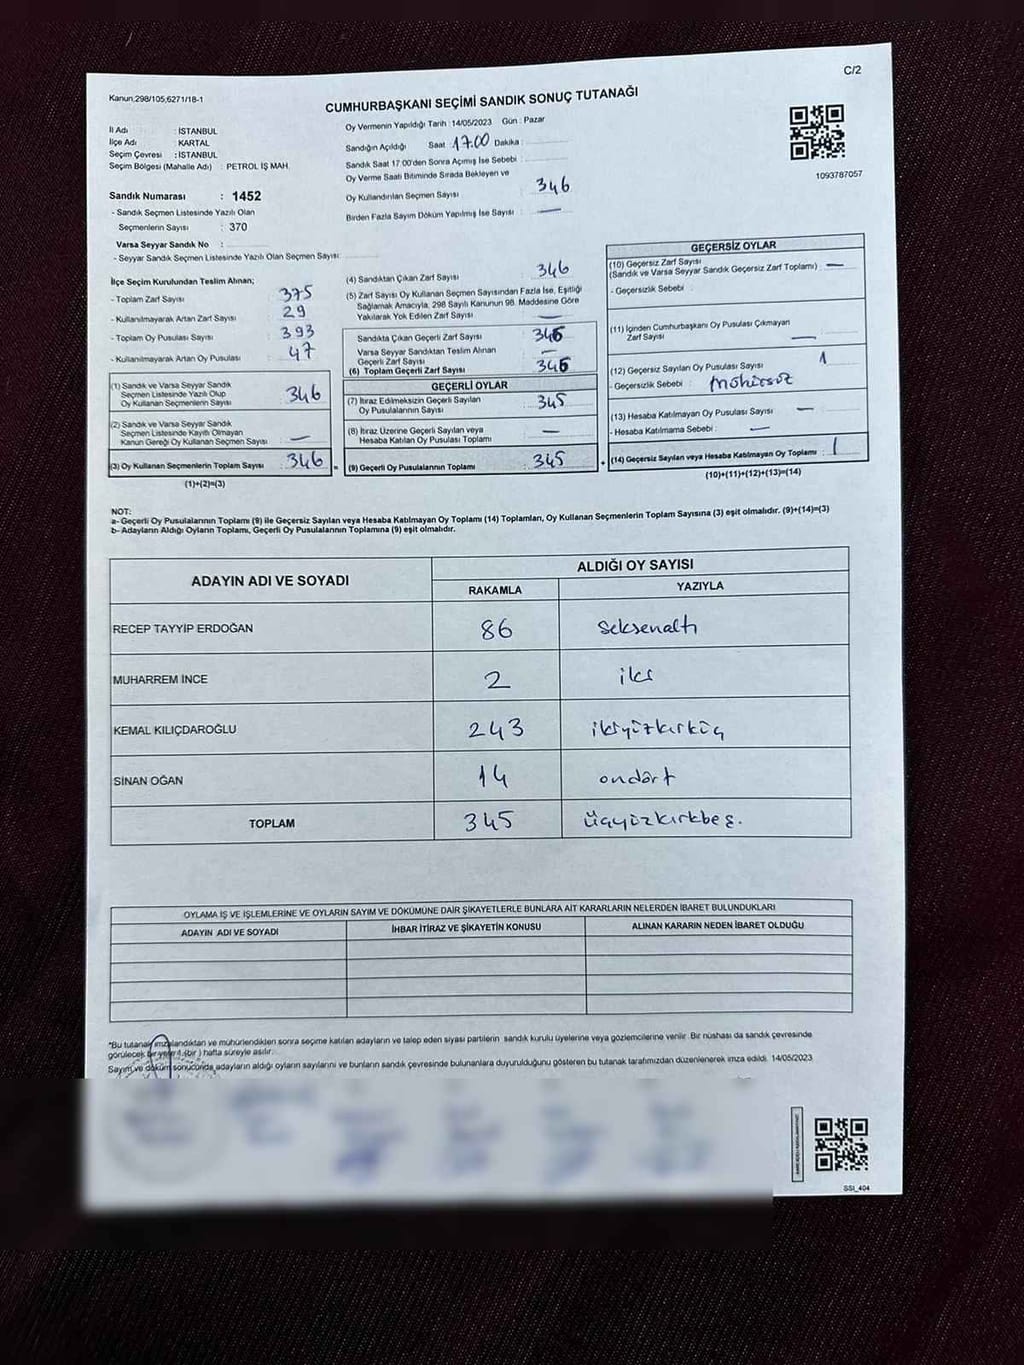 C/2
Kanun,298/105,6271/18-1
CUMHURBAŞKANI SEÇİMİ SANDIK SONUÇ TUTANAĞI
İl Adı : İSTANBUL
İlçe Adı : KARTAL
Seçim Çevresi : İSTANBUL
Seçim Bölgesi (Mahalle Adı) : PETROL İŞ MAH.
Sandık Numarası : 1452
- Sandık Seçmen Listesinde Yazılı Olan
Seçmenlerin Sayısı : 370
Varsa Seyyar Sandık No :
- Seyyar Sandık Seçmen Listesinde Yazılı Olan Seçmen Sayısı:
Oy Vermenin Yapıldığı Tarih : 14/05/2023 Gün : Pazar
Sandığın Açıldığı Saat : 17.00 Dakika :
Sandık Saat 17.00'den Sonra Açımış İse Sebebi :
Oy Verme Saati Bitiminde Sırada Bekleyen ve
Oy Kullandırılan Seçmen Sayısı : 346
Birden Fazla Sayım Döküm Yapılmış İse Sayısı : —
1093787057
İlçe Seçim Kurulundan Teslim Alınan;
- Toplam Zarf Sayısı : 375
- Kullanılmayarak Artan Zarf Sayısı : 29
- Toplam Oy Pusulası : 393
- Kullanılmayarak Artan Oy Pusulası : 47
(1) Sandık ve Varsa Seyyar Sandık
Seçmen Listesinde Yazılı Olup
Oy Kullanan Seçmenlerin Sayısı : 346
(2) Sandık ve Varsa Seyyar Sandık
Seçmen Listesinde Kayıtlı Olmayan
Kanun Gereği Oy Kullanan Seçmen Sayısı : —
(3) Oy Kullanan Seçmenlerin Toplam Sayısı : 346 =
(1)+(2)=(3)
(4) Sandıktan Çıkan Zarf Sayısı : 346
(5) Zarf Sayısı Oy Kullanan Seçmen Sayısından Fazla İse, Eşitliği
Sağlamak Amacıyla, 298 Sayılı Kanunun 98. Maddesine Göre
Yakılarak Yok Edilen Zarf Sayısı : —
Sandıkta Çıkan Geçerli Zarf Sayısı : 346
Varsa Seyyar Sandıktan Teslim Alınan
Geçerli Zarf Sayısı : —
(6) Toplam Geçerli Zarf Sayısı : 346
GEÇERLİ OYLAR
(7) İtiraz Edilmeksizin Geçerli Sayılan
Oy Pusulalarının Sayısı : 345
(8) İtiraz Üzerine Geçerli Sayılan veya
Hesaba Katılan Oy Pusulası Toplamı : —
(9) Geçerli Oy Pusulalarının Toplamı : 345 +
GEÇERSİZ OYLAR
(10) Geçersiz Zarf Sayısı
(Sandık ve Varsa Seyyar Sandık Geçersiz Zarf Toplamı) : —
- Geçersizlik Sebebi :
(11) İçinden Cumhurbaşkanı Oy Pusulası Çıkmayan
Zarf Sayısı : —
(12) Geçersiz Sayılan Oy Pusulası Sayısı : 1
- Geçersizlik Sebebi : Mühürsüz
(13) Hesaba Katılmayan Oy Pusulası Sayısı : —
- Hesaba Katılmama Sebebi : —
(14) Geçersiz Sayılan veya Hesaba Katılmayan Oy Toplamı : 1
(10)+(11)+(12)+(13)=(14)
NOT:
a- Geçerli Oy Pusulalarının Toplamı (9) ile Geçersiz Sayılan veya Hesaba Katılmayan Oy Toplamı (14) Toplamları, Oy Kullanan Seçmenlerin Toplam Sayısına (3) eşit olmalıdır. (9)+(14)=(3)
b- Adayların Aldığı Oyların Toplamı, Geçerli Oy Pusulalarının Toplamına (9) eşit olmalıdır.
ADAYIN ADI VE SOYADI ALDIĞI OY SAYISI
RAKAMLA YAZIYLA
RECEP TAYYİP ERDOĞAN 86 Seksenaltı
MUHARREM İNCE 2 iki
KEMAL KILIÇDAROĞLU 243 ikiyüzkırküç
SİNAN OĞAN 14 ondört
TOPLAM 345 üçyüzkırkbeş.
OYLAMA İŞ VE İŞLEMLERİNE VE OYLARIN SAYIM VE DÖKÜMÜNE DAİR ŞİKAYETLERLE BUNLARA AİT KARARLARIN NELERDEN İBARET BULUNDUKLARI
ADAYIN ADI VE SOYADI İHBAR İTİRAZ VE ŞİKAYETİN KONUSU ALINAN KARARIN NEDEN İBARET OLDUĞU
*Bu tutanak imzalandıktan ve mühürlendikten sonra seçime katılan adayların ve talep eden siyasi partilerin sandık kurulu üyelerine veya gözlemcilerine verilir. Bir nüshası da sandık çevresinde
görülecek bir yere 1 (bir ) hafta süreyle asılır.
Sayım ve döküm sonucunda adayların aldığı oyların sayılarını ve bunların sandık çevresinde bulunanlara duyurulduğunu gösteren bu tutanak tarafımızdan düzenlenerek imza edildi. 14/05/2023
SSI_404